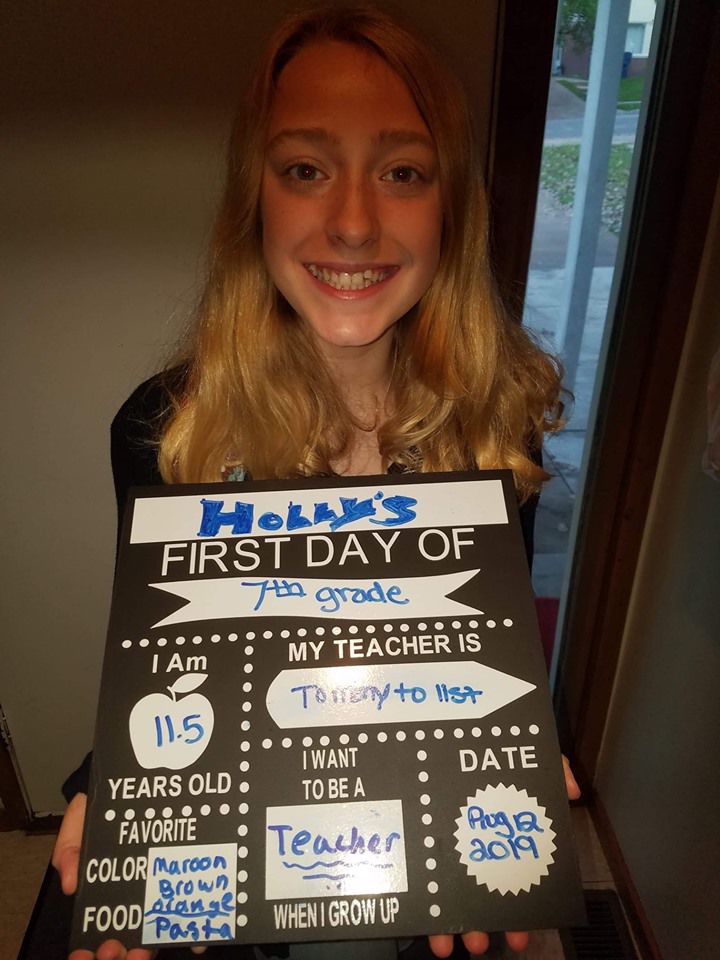 HOLLY'S
FIRST DAY OF
7th grade
I Am
11.5
YEARS OLD
MY TEACHER IS
Too many to list
I WANT
TO BE A
Teacher
WHEN I GROW UP
DATE
Aug 12
2019
FAVORITE
COLOR Maroon
Brown
orange
FOOD Pasta